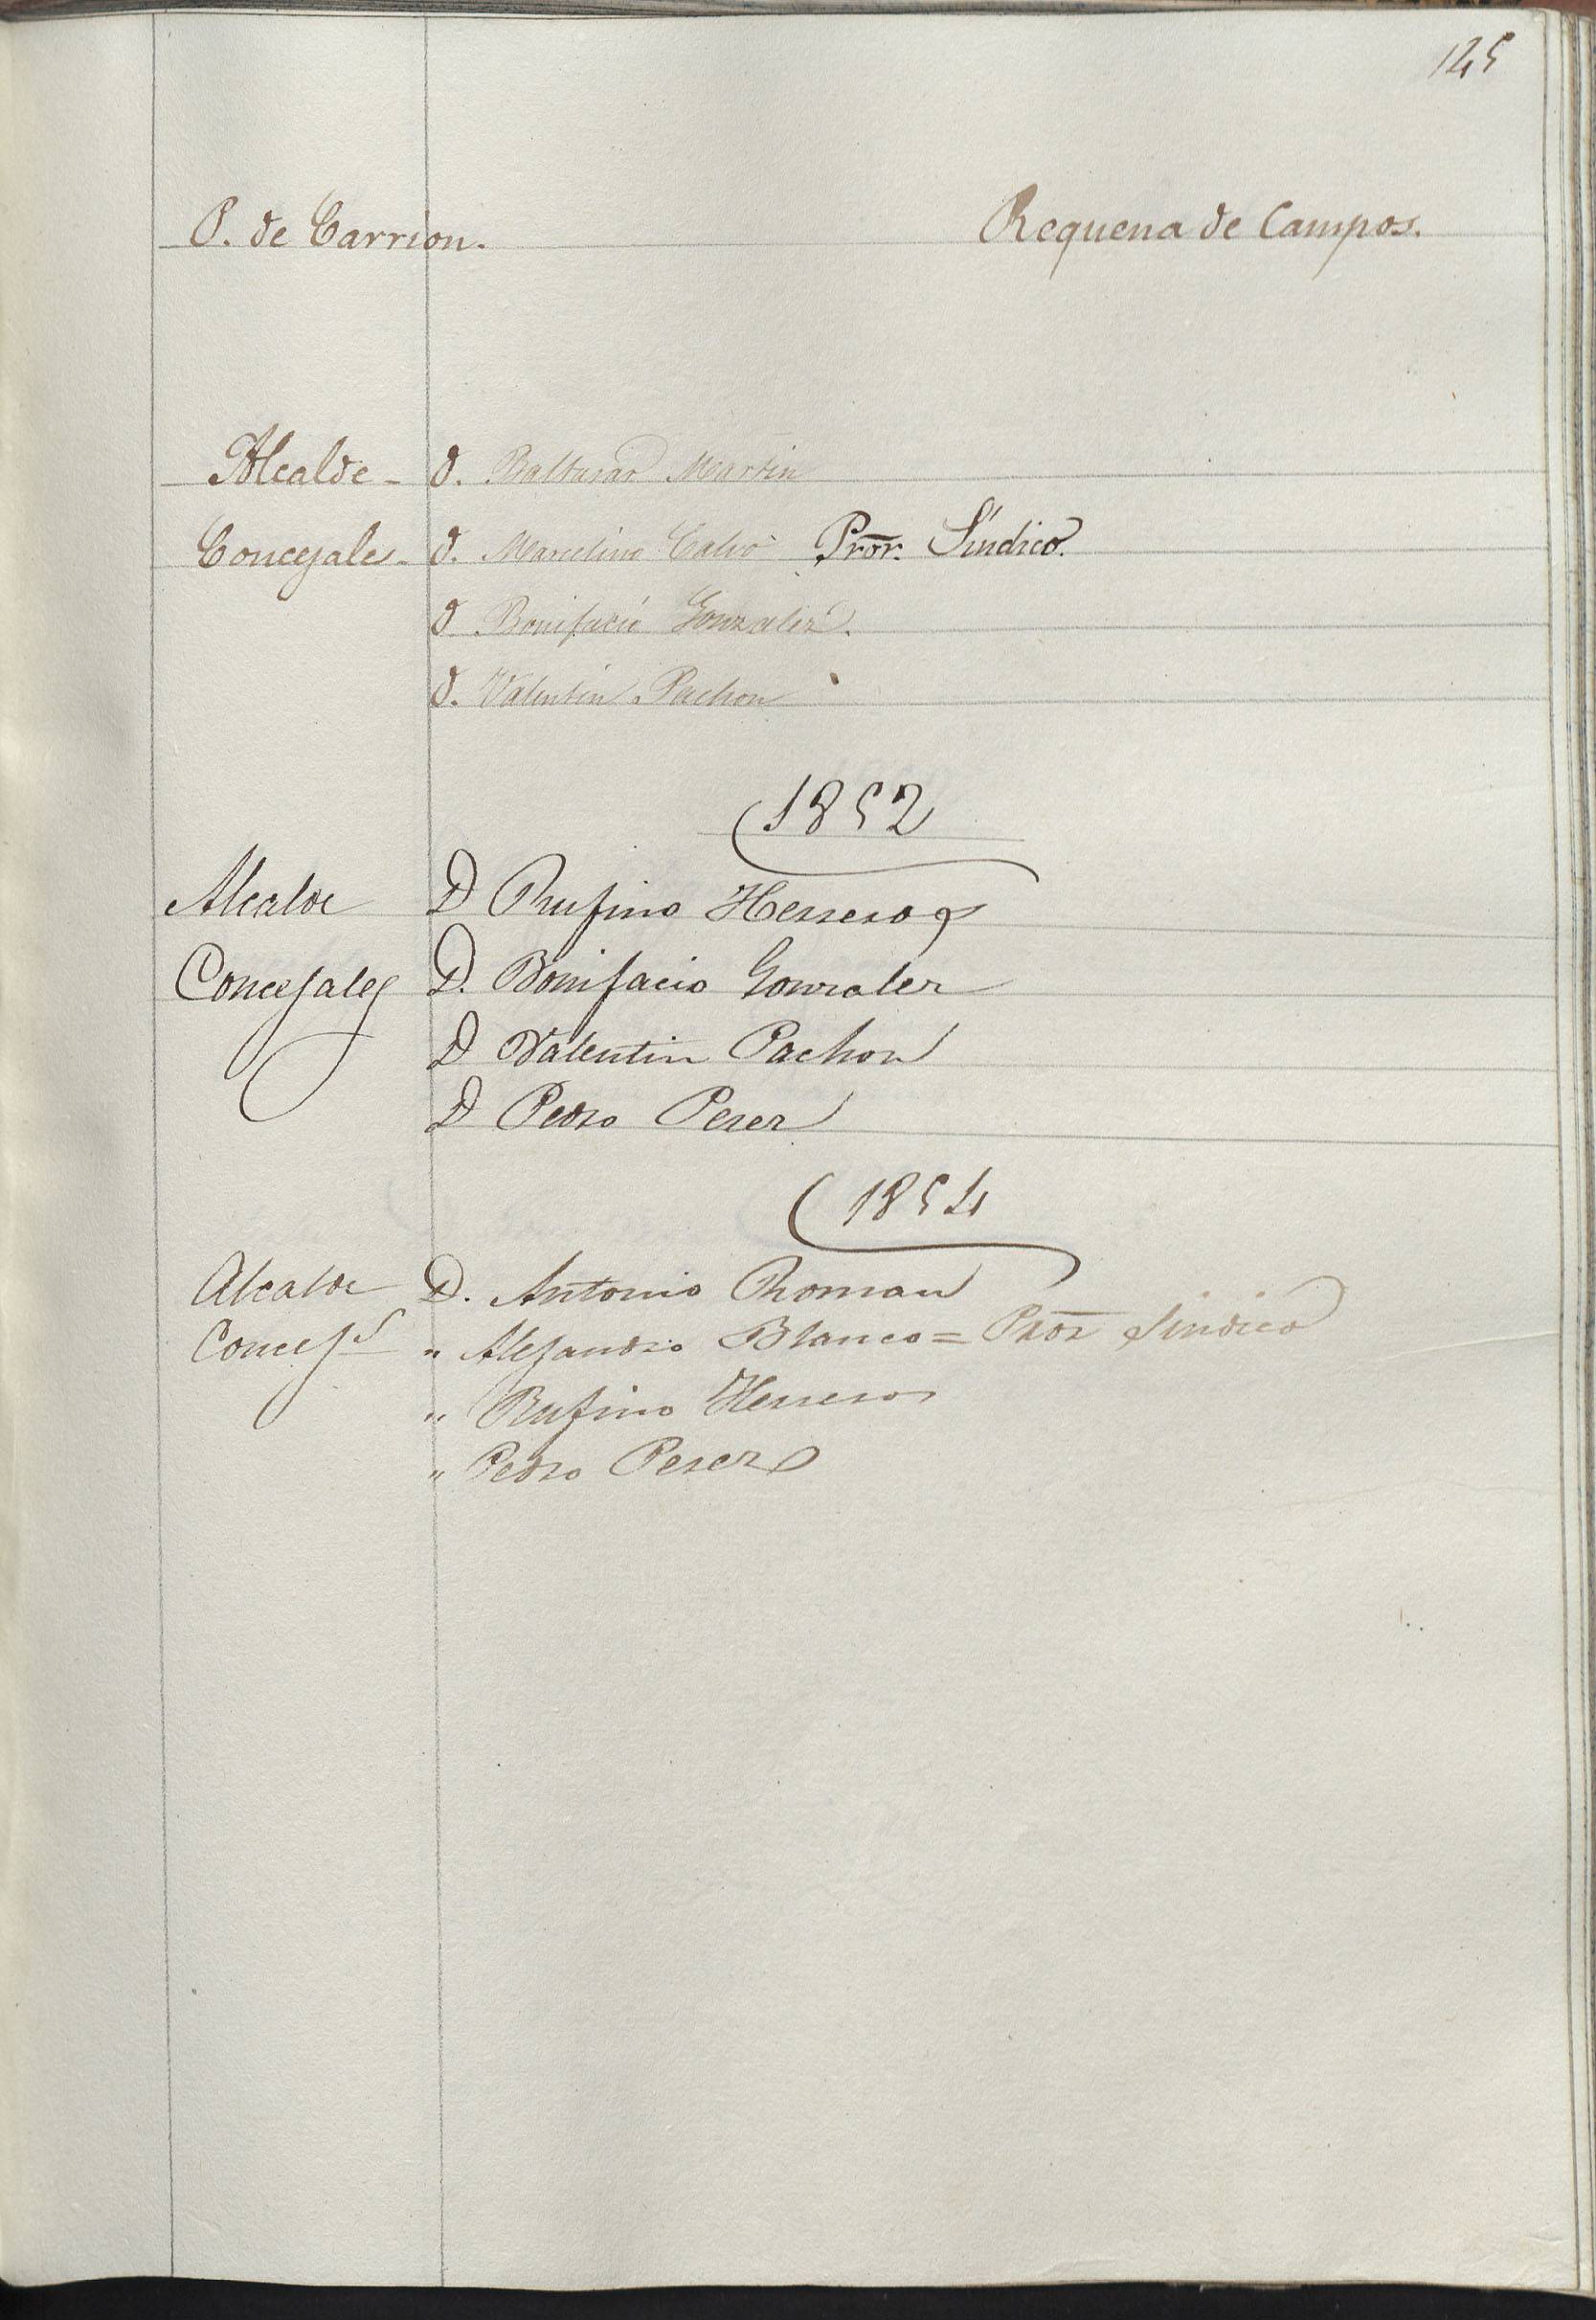 145
P. de Carrion. Requena de Campos.
Alcalde - D. Baltasar Martin
Concejales - D. Marcelino Calvo Pror. Síndico.
D Bonifacio Gonzalez.
D. Valentin Pachon
1852
Alcalde D Rufino Herrero
Concejales D. Bonifacio Gonzalez
D Valentin Pachon
D Pedro Perez
1854
Alcalde D. Antonio Roman
Concejs " Alejandro Blanco = Pror Sindico
" Rufino Herrero
" Pedro Perez